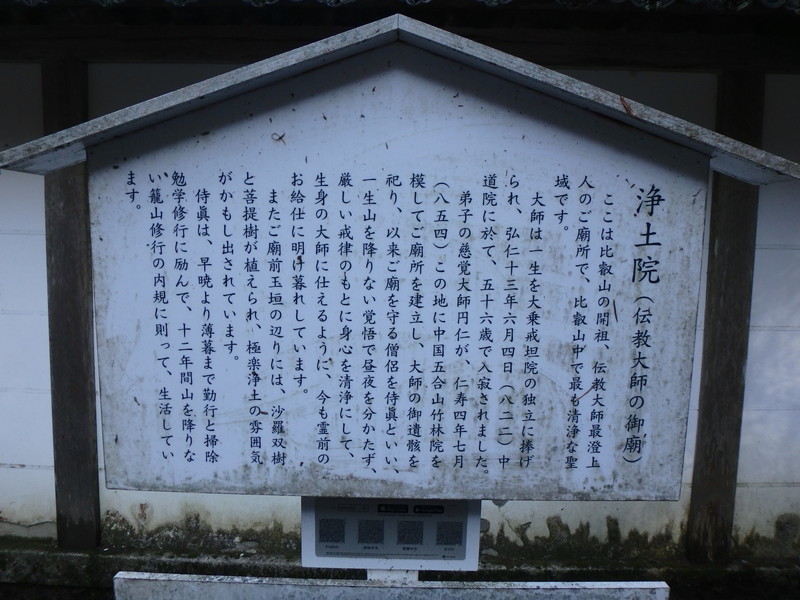 浄土院（伝教大師の御廟）
ここは比叡山の開祖、伝教大師最澄上
人のご廟所で、比叡山中で最も清浄な聖
域です。
大師は一生を大乗戒坦院の独立に捧げ
られ、弘仁十三年六月四日（八二二）中
道院に於て、五十六歳で入寂されました。
弟子の慈覚大師円仁が、仁寿四年七月
（八五四）この地に中国五台山竹林院を
模してご廟所を建立し、大師の御遺骸を
祀り、以来ご廟を守る僧侶を侍眞といい、
一生山を降りない覚悟で昼夜を分かたず、
厳しい戒律のもとに身心を清浄にして、
生身の大師に仕えるように、今も霊前の
お給仕に明け暮れしています。
またご廟前玉垣の辺りには、沙羅双樹
と菩提樹が植えられ、極楽浄土の雰囲気
がかもし出されています。
侍眞は、早暁より薄暮まで勤行と掃除
勉学修行に励んで、十二年間山を降りな
い籠山修行の内規に則って、生活してい
ます。